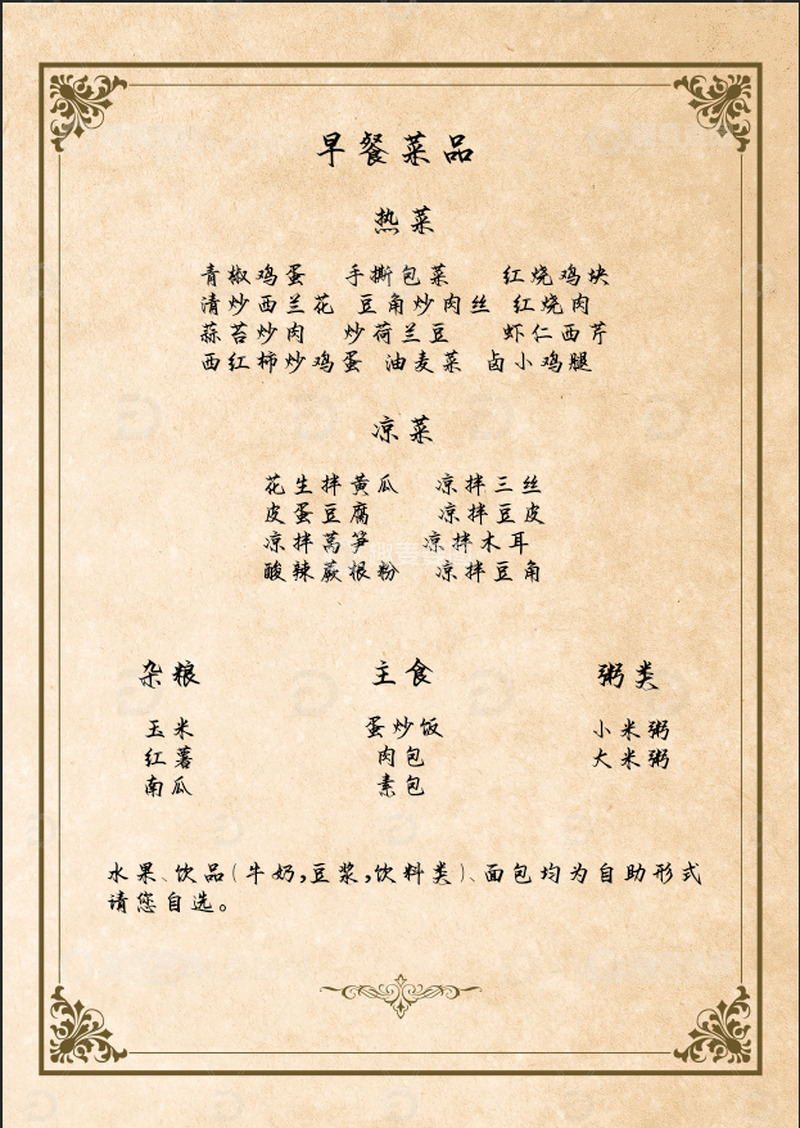 早餐菜品
热菜
青椒鸡蛋 手撕包菜 红烧鸡块
清炒西兰花 豆角炒肉丝 红烧肉
蒜苔炒肉 炒荷兰豆 虾仁西芹
西红柿炒鸡蛋 油麦菜 卤小鸡腿
凉菜
花生拌黄瓜 凉拌三丝
皮蛋豆腐 凉拌豆皮
凉拌莴笋 凉拌木耳
酸辣蕨根粉 凉拌豆角
杂粮 主食 粥类
玉米 蛋炒饭 小米粥
红薯 肉包 大米粥
南瓜 素包
水果、饮品(牛奶,豆浆,饮料类)、面包均为自助形式
请您自选。